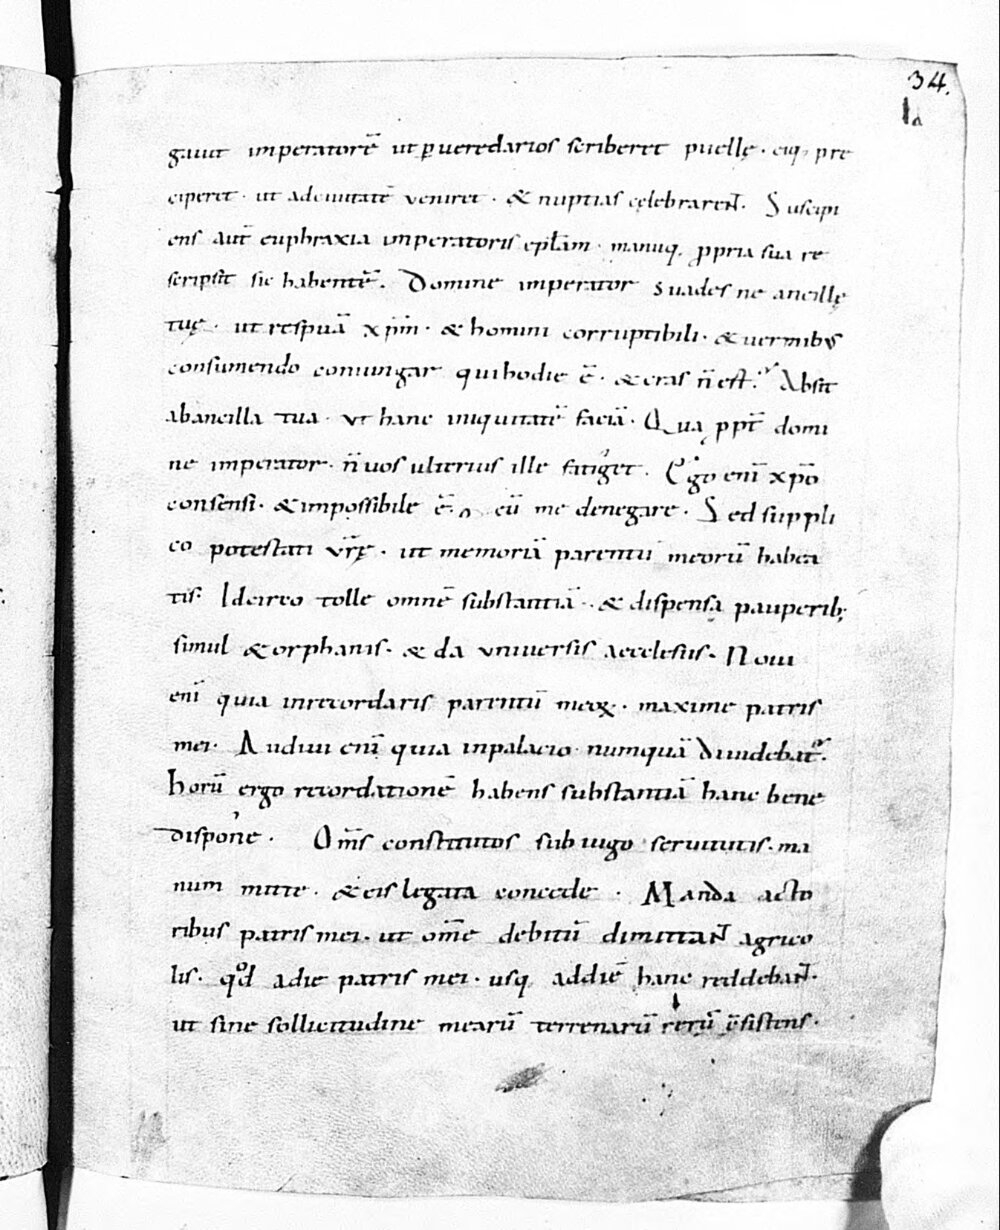 34.
gauit imperatorē ut ꝑ ueredarios scriberet puellę · eiq; pre
ciperet · ut adciuitatē ueniret · & nuptias celebrarent. Suscipi
ens aut̄ euphraxia imperatoris epl̄am · manuq; ꝓpria sua re
scripsit sic habentē. Domine imperator suades ne ancillę
tuę · ut respuā xp̄m · & homini corruptibili · & uermibus
consumendo coniungar qui hodie ē · & cras n̄ est. Absit
abancilla tua · ut hanc iniquitatē faciā · Qua ppt̄ domi
ne imperator · n̄ uos ulterius ille fatiget. Ego eni̅ xp̄o
consensi · & impossibile ē eū me denegare · Sed suppli
co potestati vr̄ę · ut memoriā parentū meorū habea
tis. Idcirco tolle omnē substantiā · & dispensa pauperib;
simul & orphanis · & da vniuersis aecclesiis · Noui
eni̅ quia inrecordaris parentū meoꝝ · maxime patris
mei · Audiui eni̅ quia inpalacio numquā diuidebat᷑.
horū ergo recordationē habens substantiā hanc bene
dispone. Om̄s constitutos sub iugo seruitutis · ma
num mitte · & eis legata concede · Manda acto
ribus patris mei · ut om̄e debitū dimittant agrico
lis · qd̄ adie patris mei · usq; addiē hanc reddebant.
ut sine sollicitudine mearū terrenarū rerū c̄sistens ·